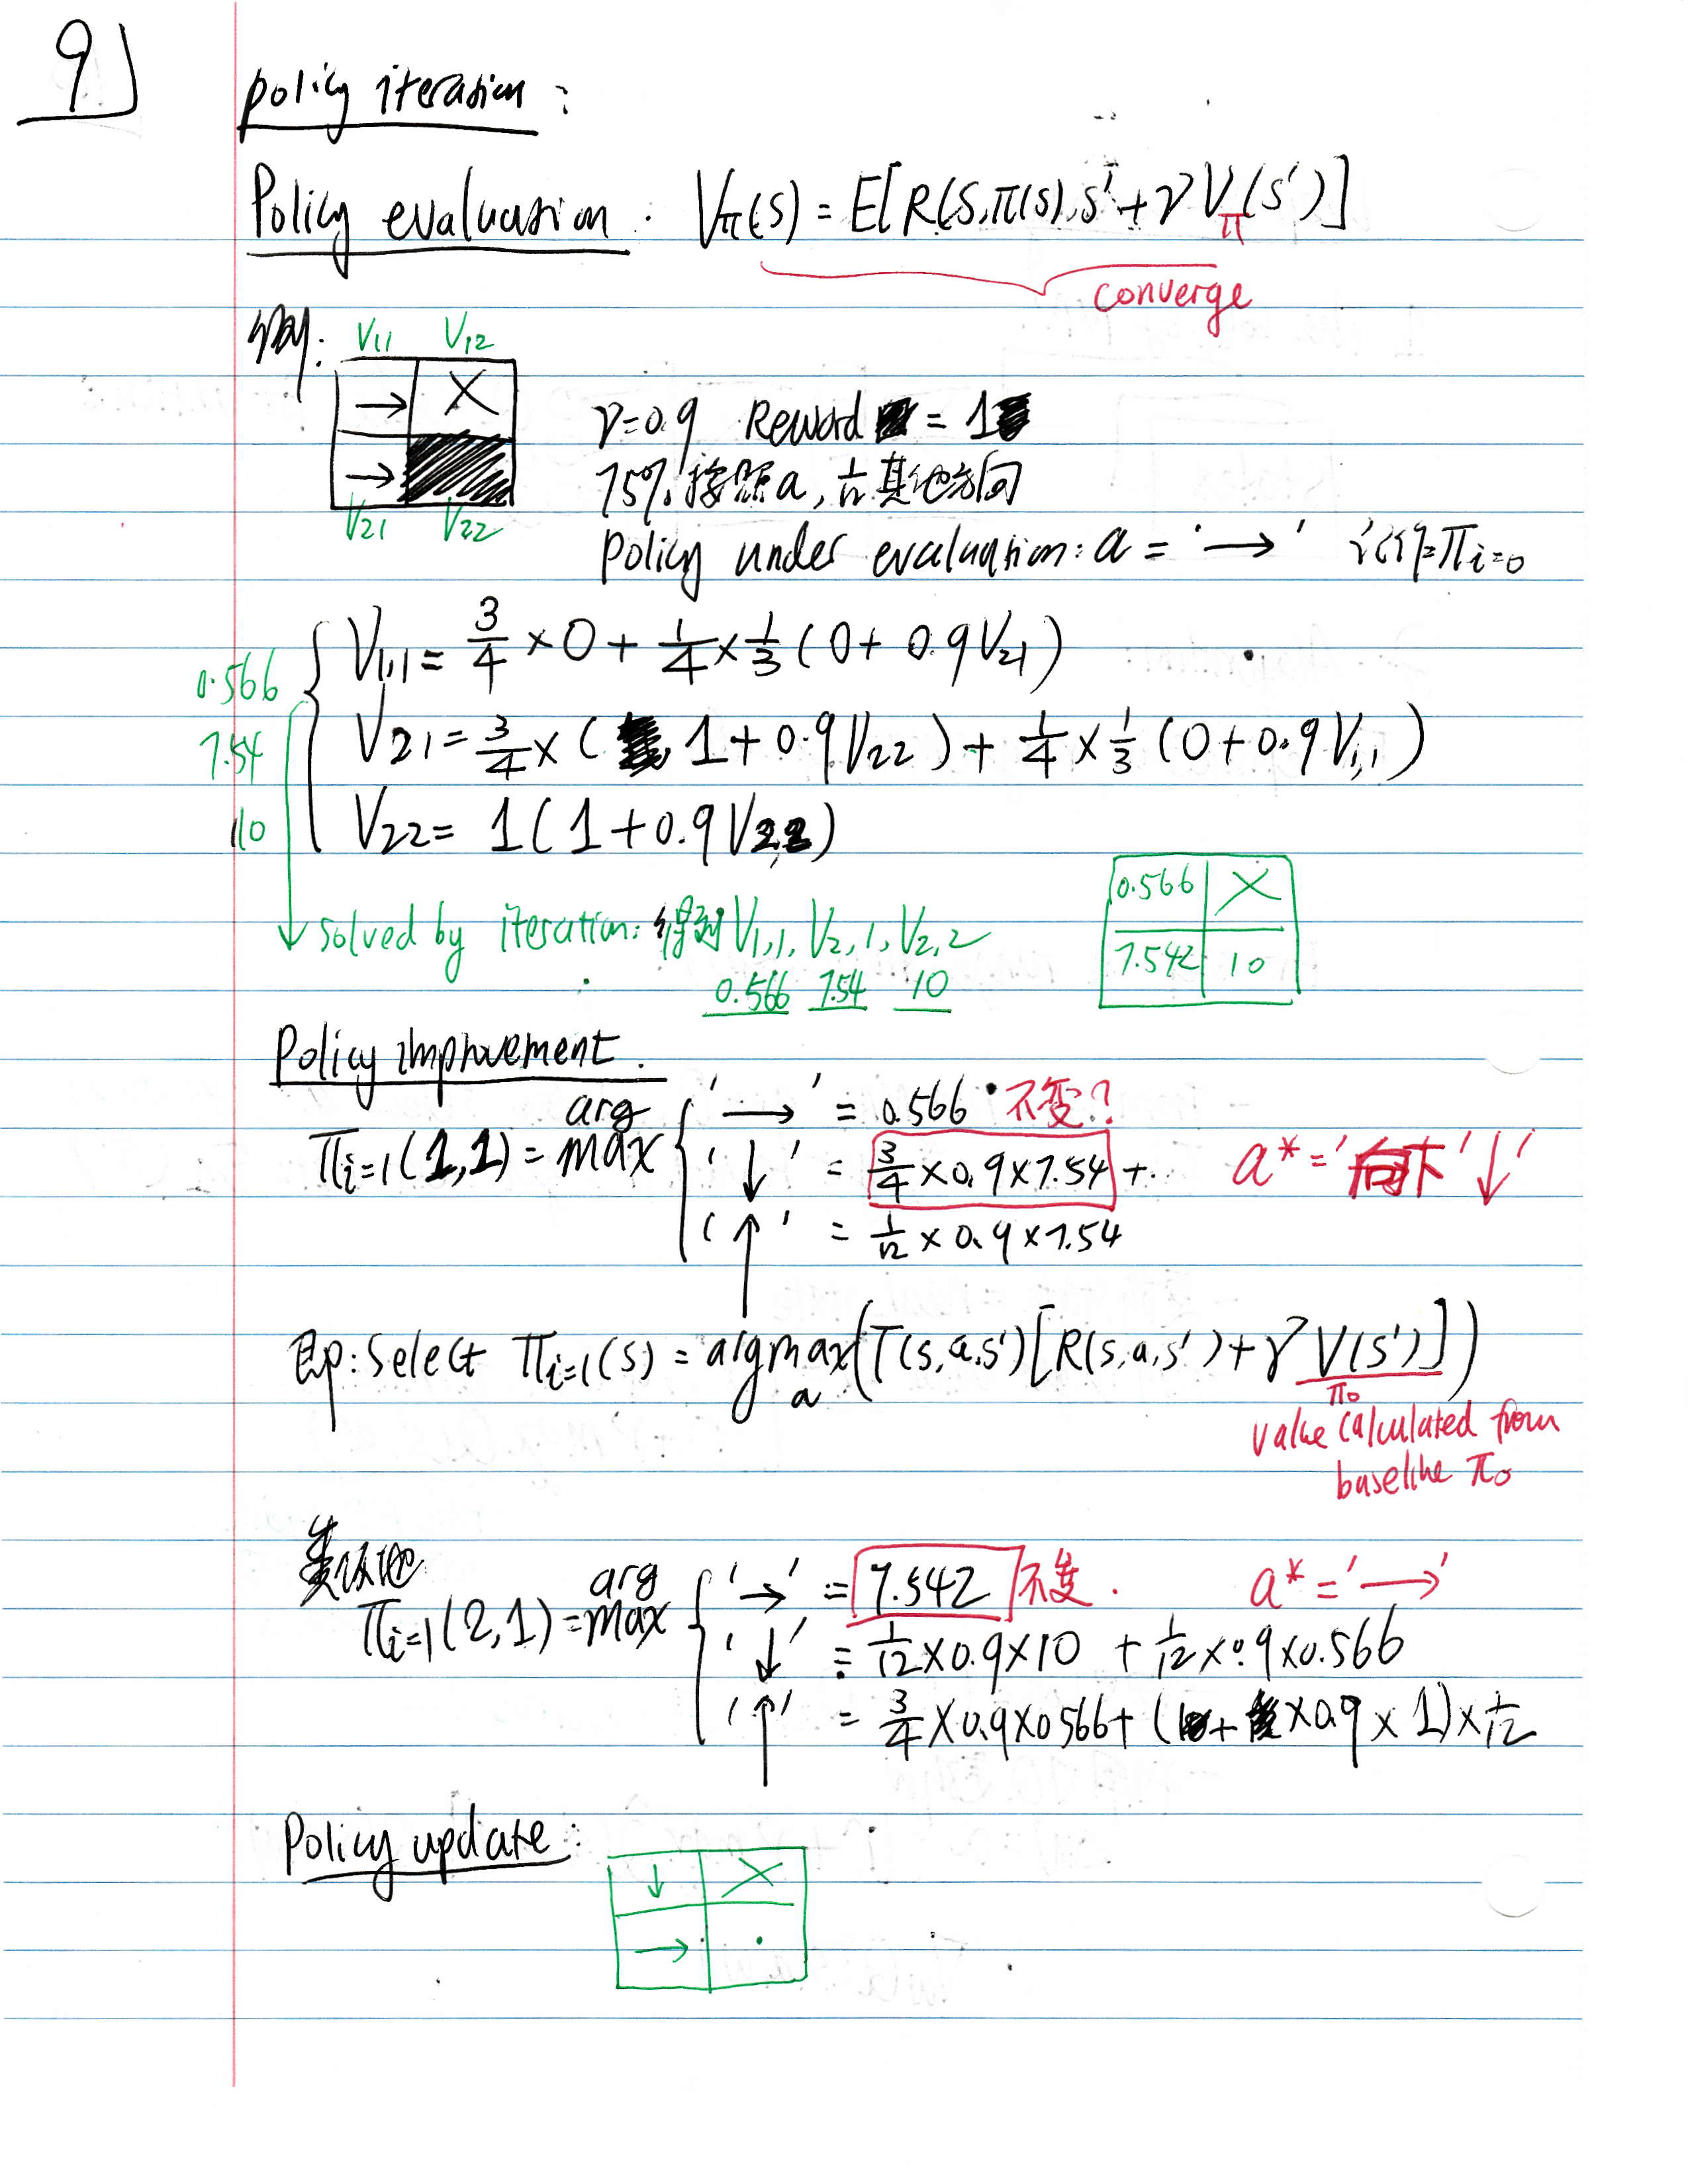 9
policy iteration:
Policy evaluation. Vπ(s) = E[R(s,π(s),s' + γVπ(s')]
converge
例: V11 V12
→ X
γ=0.9 Reward = 1
→
75% 按照a, 1/12 其他方向
V21 V22
Policy under evaluation: a = '→' 记作πi=0
0.566 V1,1 = 3/4 × 0 + 1/4 × 1/3 (0 + 0.9V21)
7.54 V21 = 3/4 × (1 + 0.9V22) + 1/4 × 1/3 (0 + 0.9V1,1)
10 V22 = 1(1 + 0.9V22)
0.566 X
↓ solved by iteration: 得到 V1,1, V2,1, V2,2
7.542 10
0.566 7.54 10
Policy improvement.
πi=1(1,1) = arg max { '→' = 0.566 不变?
'↓' = 3/4 × 0.9 × 7.54 + .. a* = '向下' '↓'
'↑' = 1/12 × 0.9 × 7.54
即: Select πi=1(s) = argmax a (T(s,a,s')[R(s,a,s') + γ V(s')])
π0
value calculated from
baseline π0
类似地
πi=1(2,1) = arg max { '→' = 7.542 不变. a* = '→'
'↓' = 1/12 × 0.9 × 10 + 1/12 × 0.9 × 0.566
'↑' = 3/4 × 0.9 × 0.566 + ( + × 0.9 × 1) × 1/12
Policy update:
↓ X
→ .